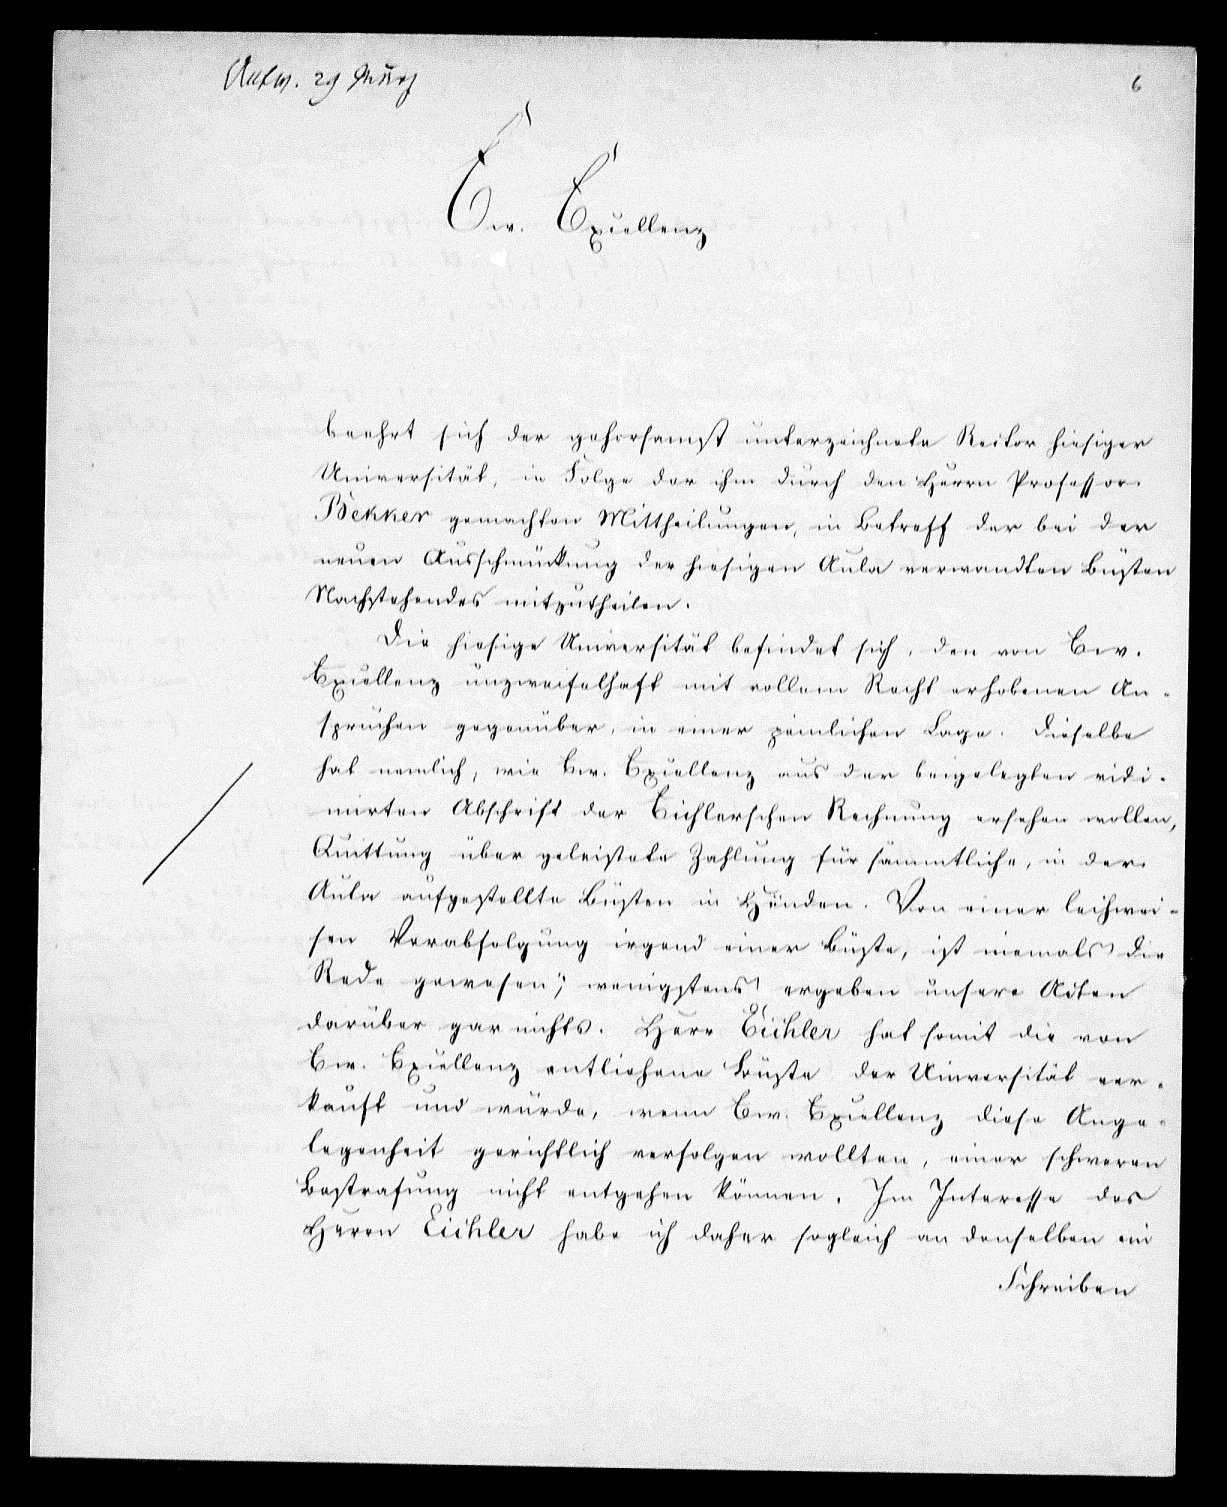 Antw. 29 März
6
Ew. Excellenz
beehrt sich der gehorsamst unterzeichnete Rector hiesiger
Universität, in Folge der ihm durch den Herrn Professor
Bekker gemachten Mittheilungen, in Betreff der bei der
neuen Ausschmückung der hiesigen Aula verwandten Büsten
Nachstehendes mitzutheilen.
Die hiesige Universität befindet sich, den von Ew.
Excellenz unzweifelhaft mit vollem Recht erhobenen An-
sprüchen gegenüber, in einer peinlichen Lage. Dieselbe
hat nemlich, wie Ew. Excellenz aus der beigelegten vidi-
mirten Abschrift der Eichlerschen Rechnung ersehen wollen,
Quittung über geleistete Zahlung für sämmtliche, in der
Aula aufgestellte Büsten in Händen. Von einer leihwei-
sen Verabfolgung irgend einer Büste, ist niemals die
Rede gewesen; wenigstens ergeben unsere Acten
darüber gar nichts. Herr Eichler hat somit die von
Ew. Excellenz entliehene Büste der Universität ver-
kauft und würde, wenn Ew. Excellenz diese Ange-
legenheit gerichtlich verfolgen wollten, einer schweren
Bestrafung nicht entgehen können. Im Interesse des
Herrn Eichler habe ich daher sogleich an denselben ein
Schreiben